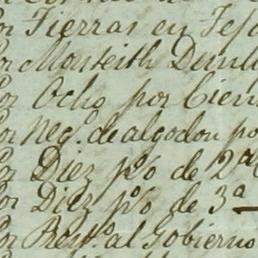 Por Tierras en Teja
Por Monteith Dunl
Por Ocho por Cien
Por Neg. de algodon po
Por Diez p% de 2ª cl
Por Diez p% de 3ª
Por Prest.s al Gobierno